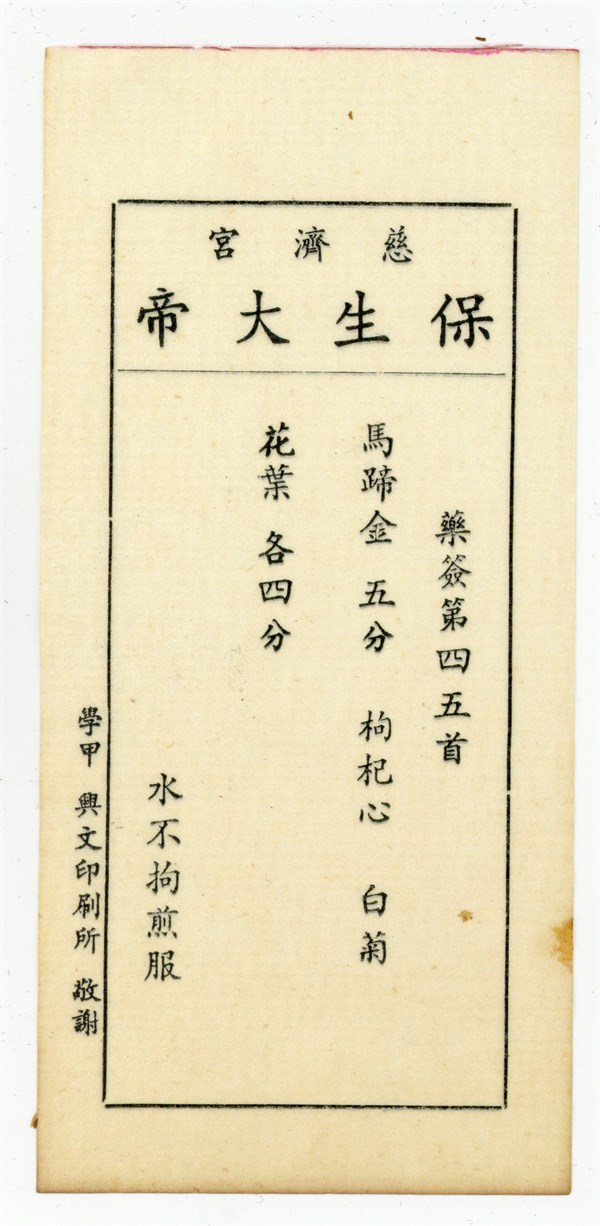 慈濟宮
保生大帝
藥簽第四五首
馬蹄金 五分 枸杞心 白菊
花葉 各四分
水不拘煎服
學甲 興文印刷所 敬謝